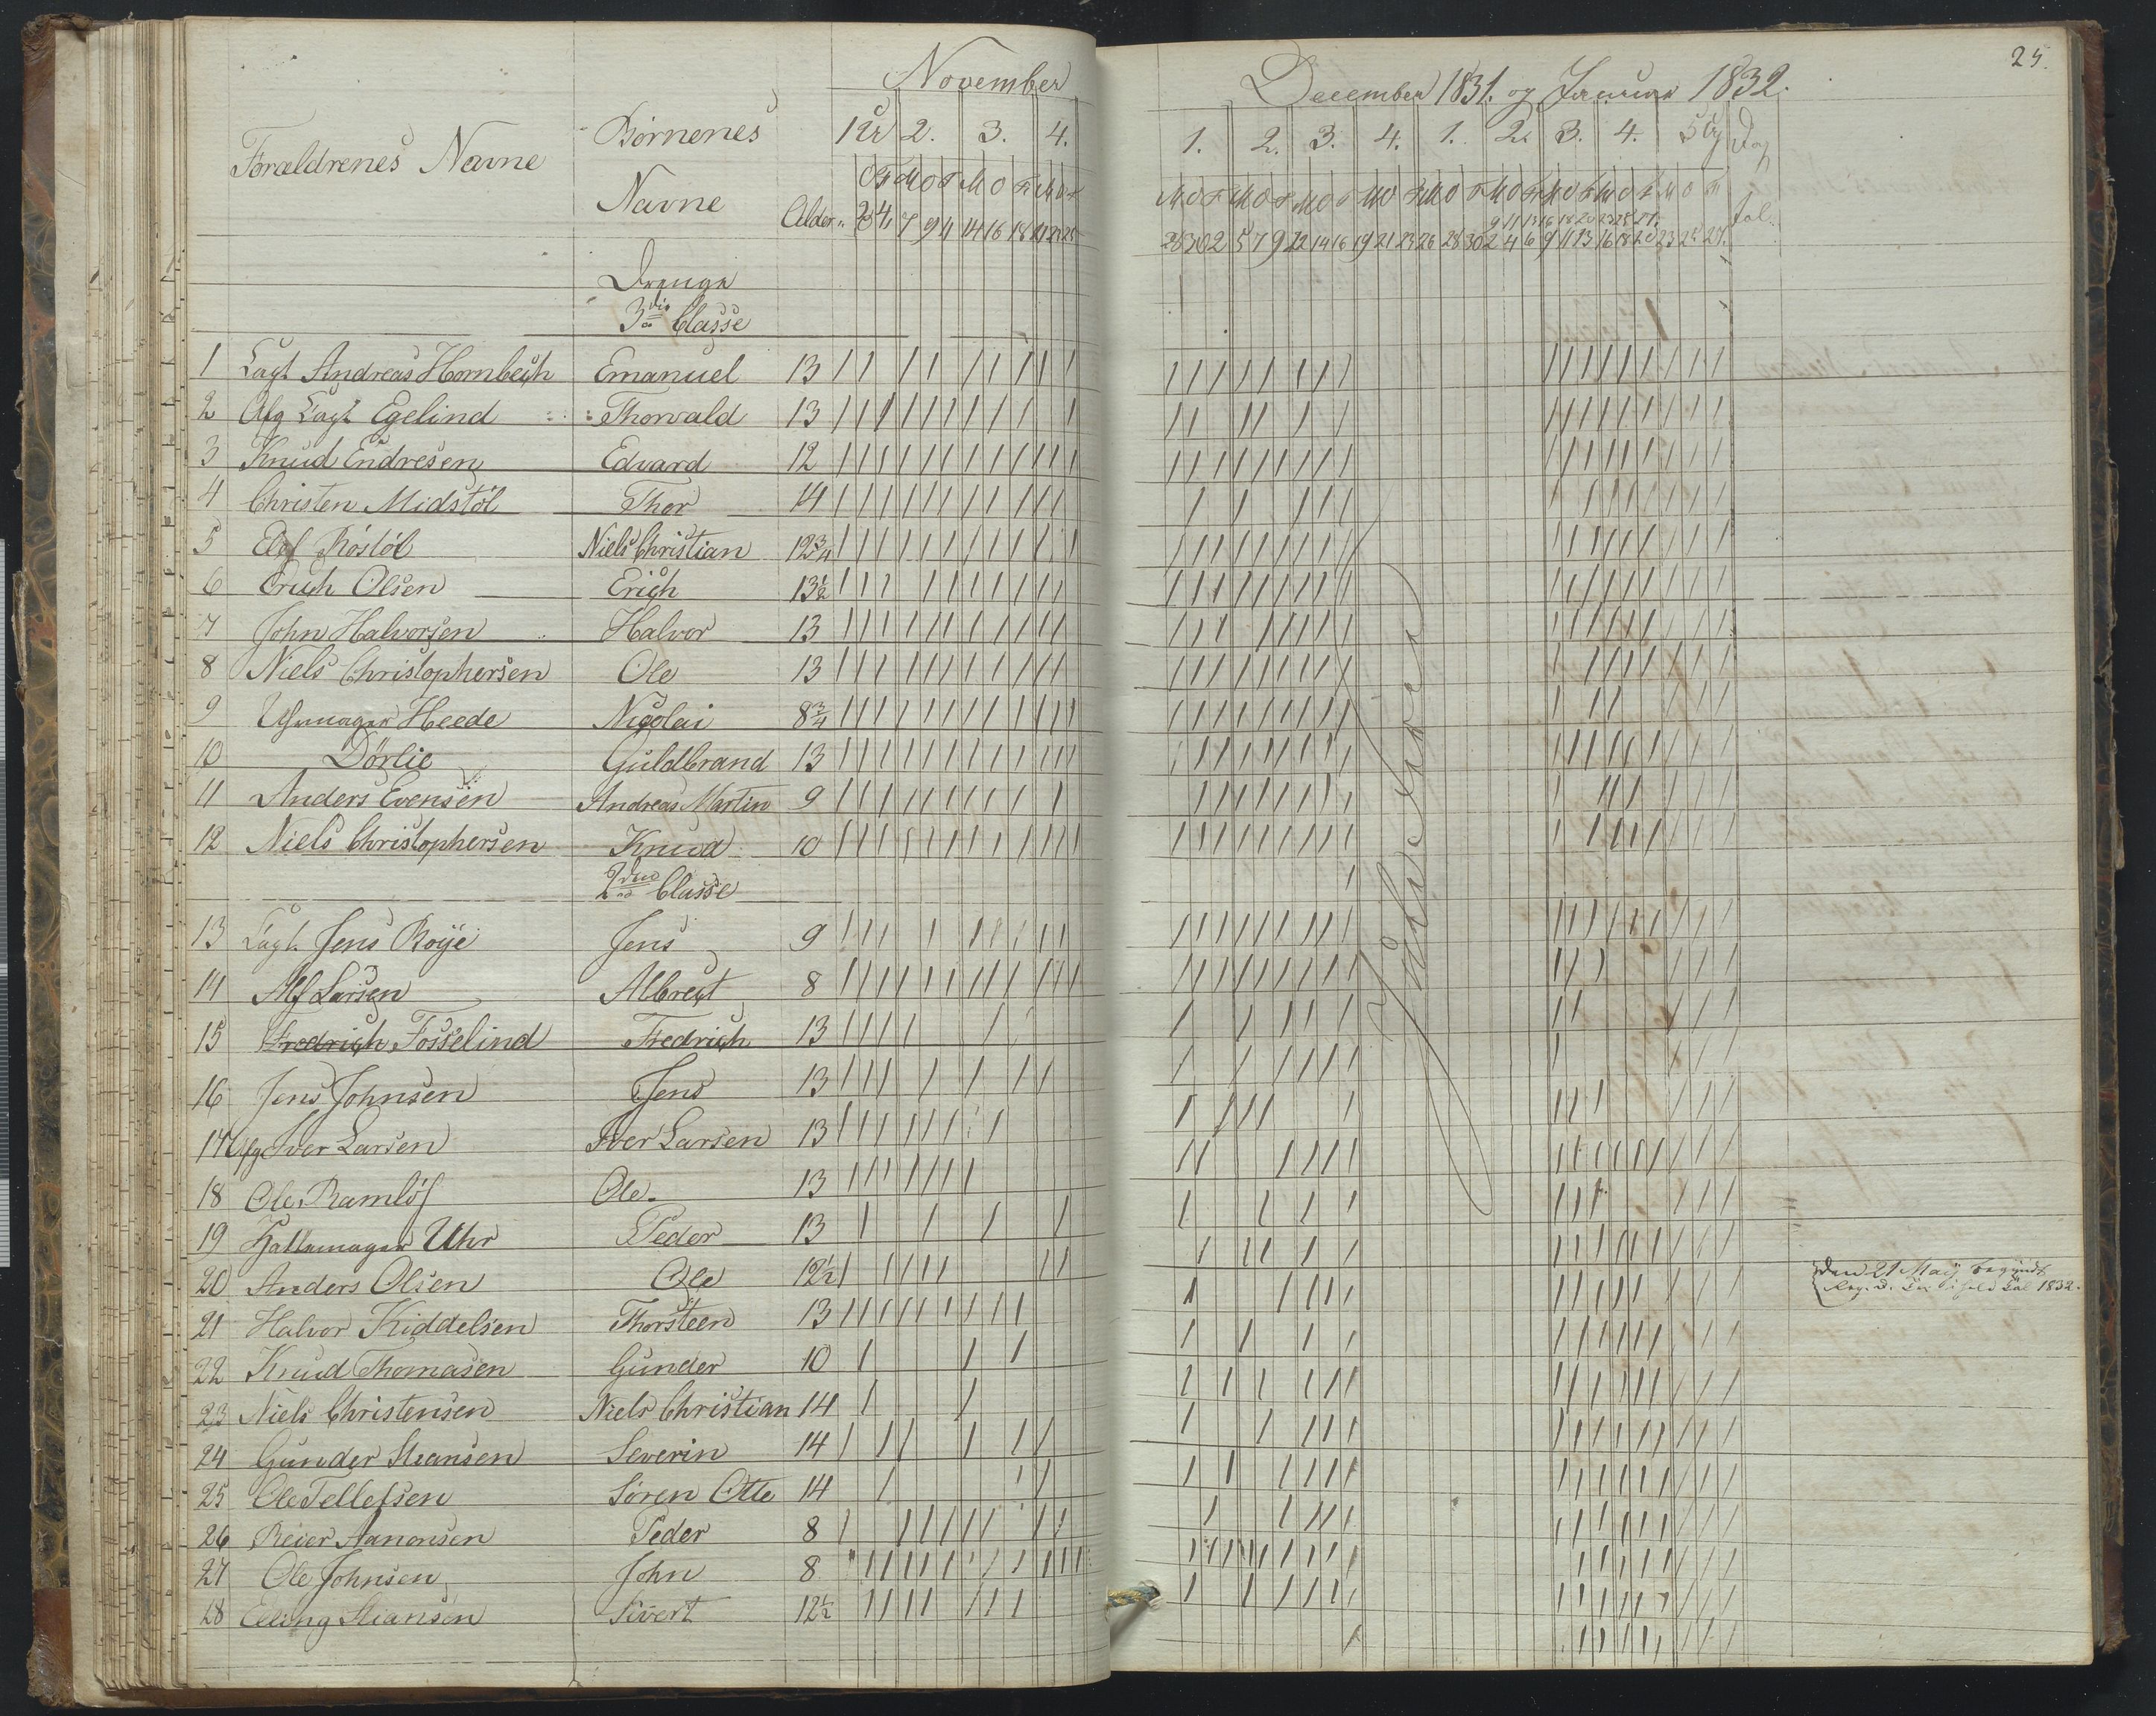 November
Forældrenes Navne
Børnenes
Navne
Alder
1 2. 3. 4.
O F M O F M O F M O F
2 4 7 9 11 14 16 18 21 23 25
Drenge
3die Classe
1 Capt. Andreas Hornbech Emanuel 13
2 Afg Capt Egelind Thorvald 13
3 Knud Endresen Edvard 12
4 Christen Midstöl Thor 14
5 Elef Röstöl Niels Christian 12 3/4
6 Erich Olsen Erich 13 1/2
7 John Halvorsen Halvor 13
8 Niels Christophersen Ole 13
9 Uhrmager Heede Nicolai 8 3/4
10 Dörlie Guldbrand 13
11 Anders Evensen Andreas Martin 9
12 Niels Christophersen Knud 10
2den Classe
13 Capt. Jens Boije Jens 9
14 Alf Larsen Albregt 8
15 Fredrich Fosselind Fredrich 13
16 Jens Johnsen Jens 13
17 Afg Iver Larsen Iver Larsen 13
18 Ole Ramlöf Ole 13
19 Hattemager Uhr Peder 13
20 Anders Olsen Ole 12 1/2
21 Halvor Kiddelsen Thorsteen 13
22 Knud Thomasen Gunder 10
23 Niels Christensen Niels Christian 14
24 Gunder Stiansen Severin 14
25 Ole Tellefsen Sören Otte 14
26 Reier Aanonsen Peder 8
27 Ole Johnsen John 8
28 Elling Stiansen Sivert 12 1/2
25.
December 1831. og Januar 1832.
1. 2. 3. 4. 1. 2. 3. 4. 5 Dag
M O F M O F M O F M O F M O F M O F M O F M O F M O F tal
9 11 13 16 18 20 23 25 27
28 30 2 5 7 9 12 14 16 19 21 23 26 28 30 2 4 6 9 11 13 16 18 20 23 25 27
Juleferier
den 21 Maij begyndt
1832.